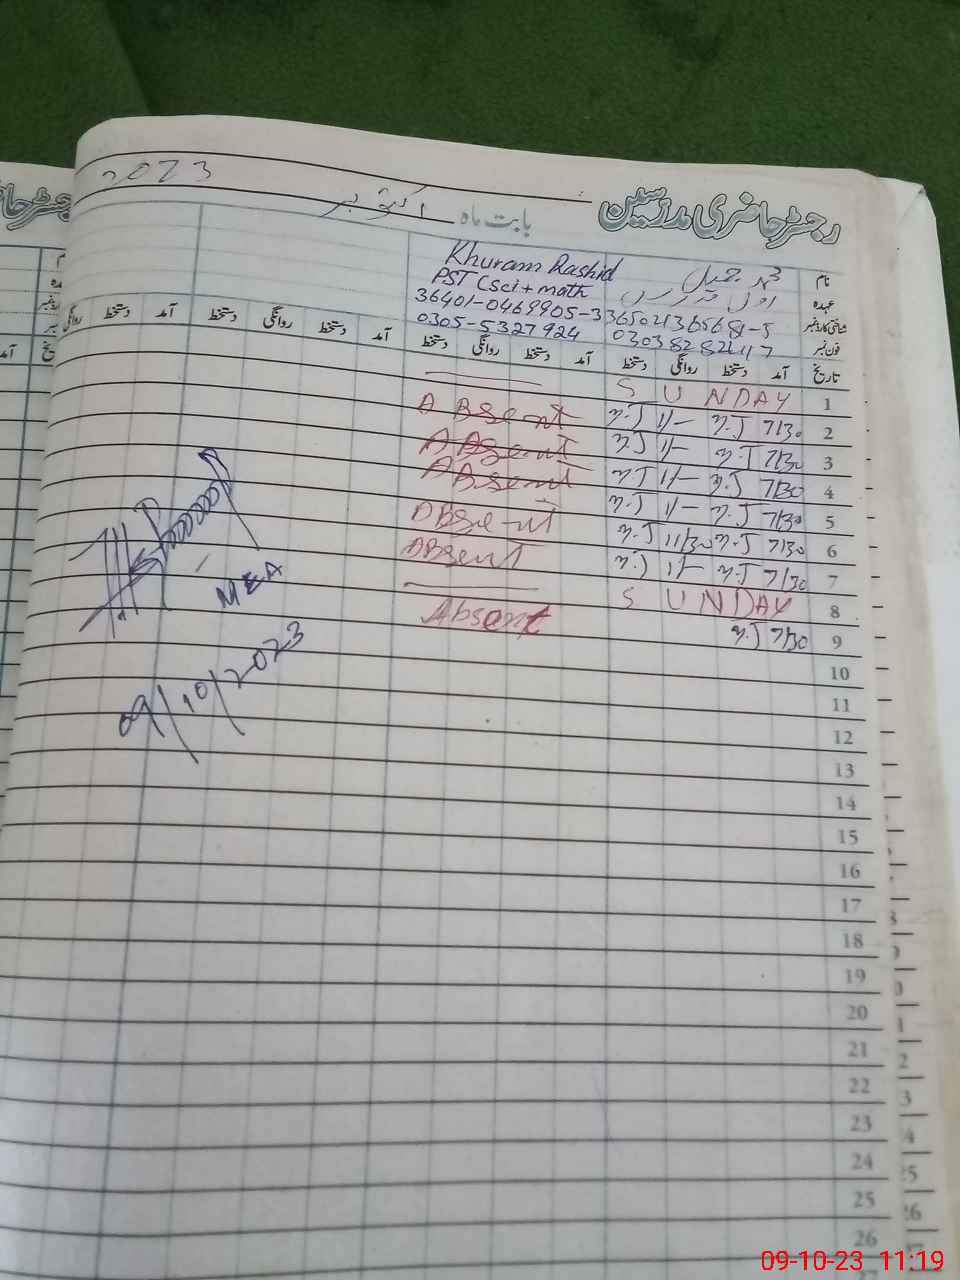 2023
رجسٹر حاضری مدرسین بابت ماہ اکتوبر
نام محمد جمیل Khuram Rashid
عہدہ اول مدرس PST (Sci + math
شناختی کارڈ نمبر 365021365681-5 36401-0469905-3
فون نمبر 03038282417 0305-5327924
تاریخ آمد دستخط روانگی دستخط آمد دستخط روانگی دستخط آمد دستخط روانگی دستخط آمد دستخط روانگی
1 SUNDAY
2 7/30 M.J 1/- M.J Absent
3 7/30 M.J 1/- M.J Absent
4 7/30 M.J 1/- M.J Absent
5 7/30 M.J 1/- M.J Absent
6 7/30 M.J 11/30 M.J Absent
7 7/30 M.J 1/- M.J
8 SUNDAY
9 7/30 M.J Absent
MEA
09/10/2023
10
11
12
13
14
15
16
17
18
19
20
21
22
23
24
25
26
09-10-23 11:19